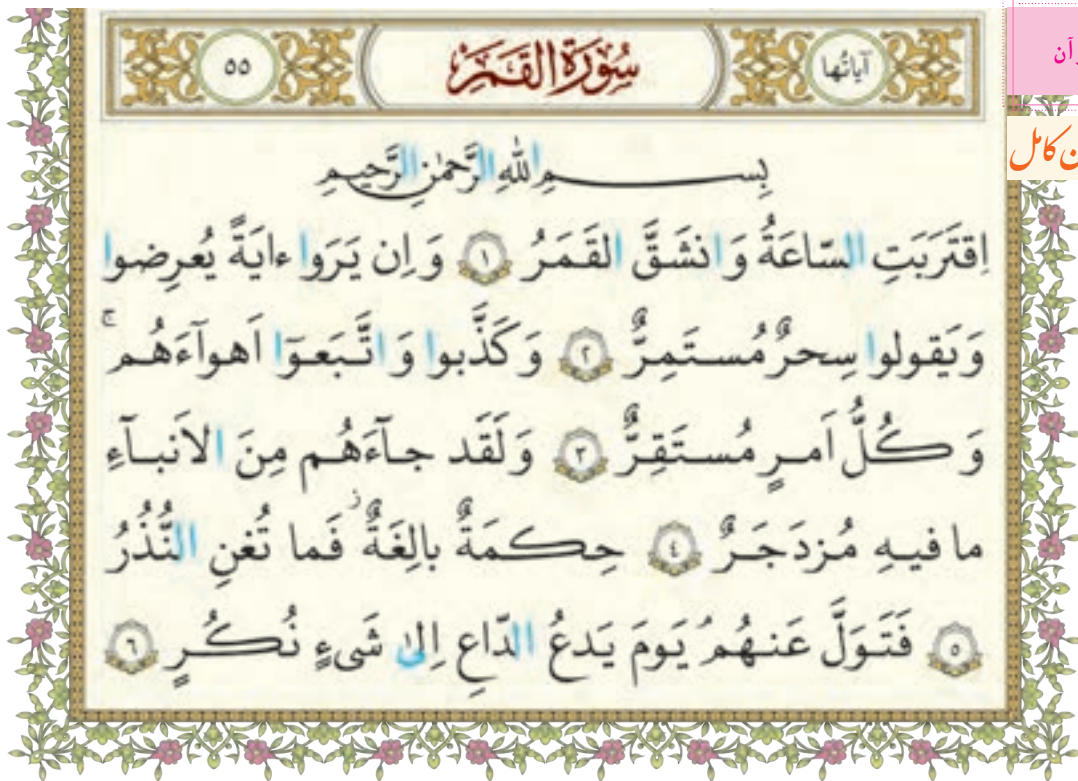 آیاتُها
سُورَةُ القَمَرِ
٥٥
رآن
ن کامل
بِسمِ اللهِ الرَّحمٰنِ الرَّحیمِ
اِقتَرَبَتِ السّاعَةُ وَ انشَقَّ القَمَرُ ١ وَ اِن یَرَوا ءایَةً یُعرِضوا
وَ یَقولوا سِحرٌ مُستَمِرٌّ ٢ وَ کَذَّبوا وَ اتَّبَعوٓا اَهوآءَهُم ۚ
وَ کُلُّ اَمرٍ مُستَقِرٌّ ٣ وَ لَقَد جآءَهُم مِنَ الاَنبآءِ
ما فیهِ مُزدَجَرٌ ٤ حِکمَةٌ بالِغَةٌ ز فَما تُغنِ النُّذُرُ
٥ فَتَوَلَّ عَنهُم ۘ یَومَ یَدعُ الدّاعِ اِلیٰ شَیءٍ نُکُرٍ ٦